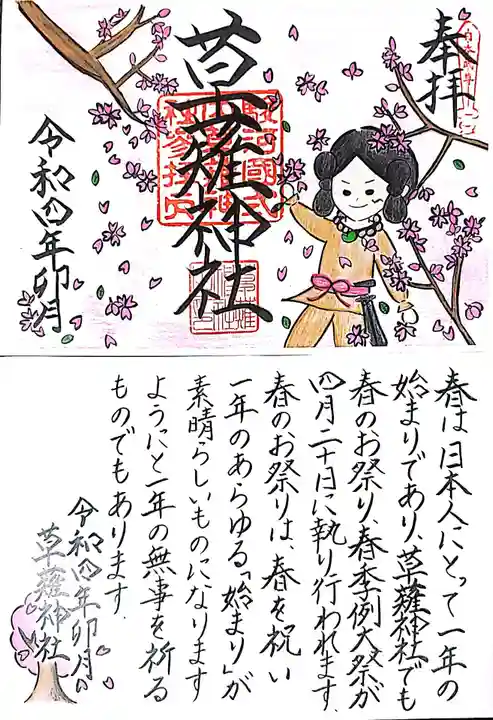 奉拝
草薙神社
令和四年卯月
春は日本人にとって一年の
始まりであり、草薙神社でも
春のお祭り、春季例大祭が
四月二十日に執り行われます。
春のお祭りは、春を祝い
一年のあらゆる「始まり」が
素晴らしいものになります
ようにと一年の無事を祈る
ものでもあります。
令和四年卯月
草薙神社